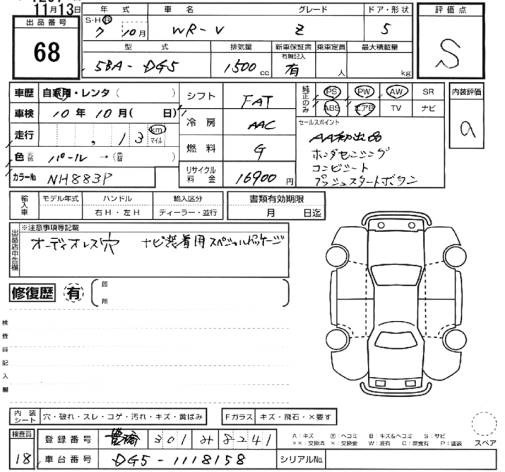 11月13日
出品番号
68
年式 車名 グレード ドア・形状
S・H・R
7年10月 WR-V Z 5
型式 排気量 新車保証書 有無記入 乗車定員 最大積載量
5BA-DG5 1500cc 有 人 kg
評価点
S
内装評価
a
車歴 自家用・レンタ( )
車検 10年10月( 日)
走行 , 13 km マイル
色 パール→( )
カラーNo NH883P
シフト FAT
冷房 AAC
燃料 G
リサイクル料金 16900円
純正のみ PS PW AW SR
ABS エアB TV ナビ
セールスポイント
AA初出品
ホンダセンシング
コンビシート
プッシュスタートボタン
輸入車 モデル年式 ハンドル 輸入区分
年 右H・左H ディーラー・並行
書類有効期限
月 日迄
出品店申告欄
※注意事項等記載
オーディオレス穴 ナビ装着用スペシャルパッケージ
修復歴 有
箇所
検査員記入欄
内装シート 穴・破れ・スレ・コゲ・汚れ・キズ・黄ばみ
Fガラス キズ・飛石・×要す
スペア
検査員
18
登録番号 豊橋 301 み 8241
車台番号 DG5-1118158
シリアルNo.
A:キズ B:キズ&ヘコミ S:サビ